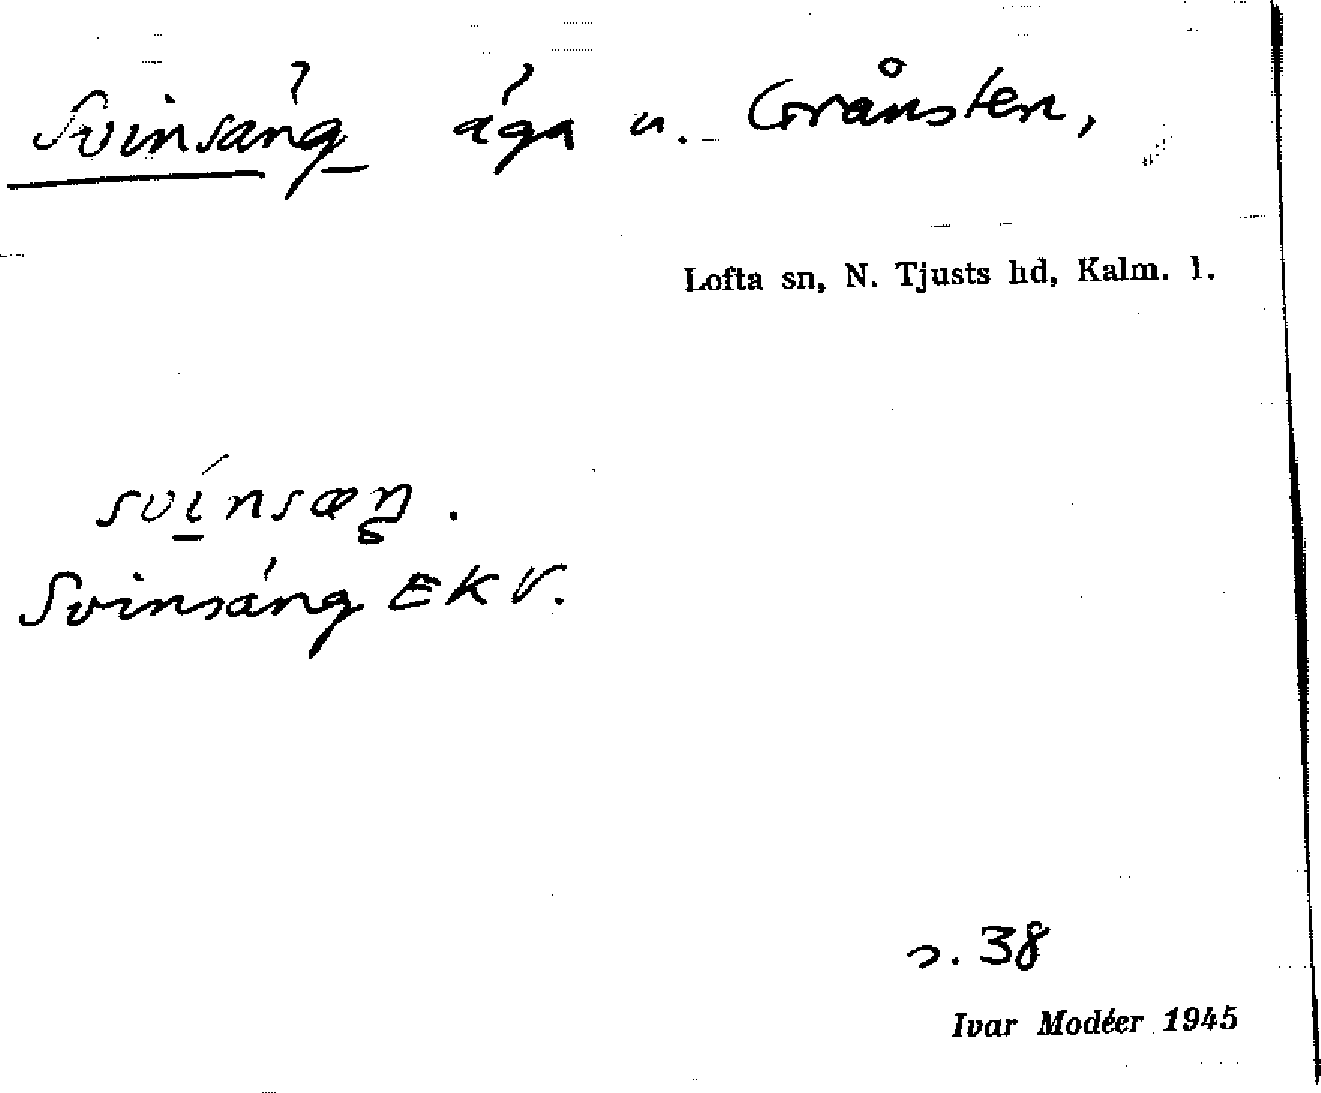 Svinsäng äga u. Gränsten,
Lofta sn, N. Tjusts hd, Kalm. l.
svínsæŋ.
Svinsäng EKV.
s. 38
Ivar Modéer 1945